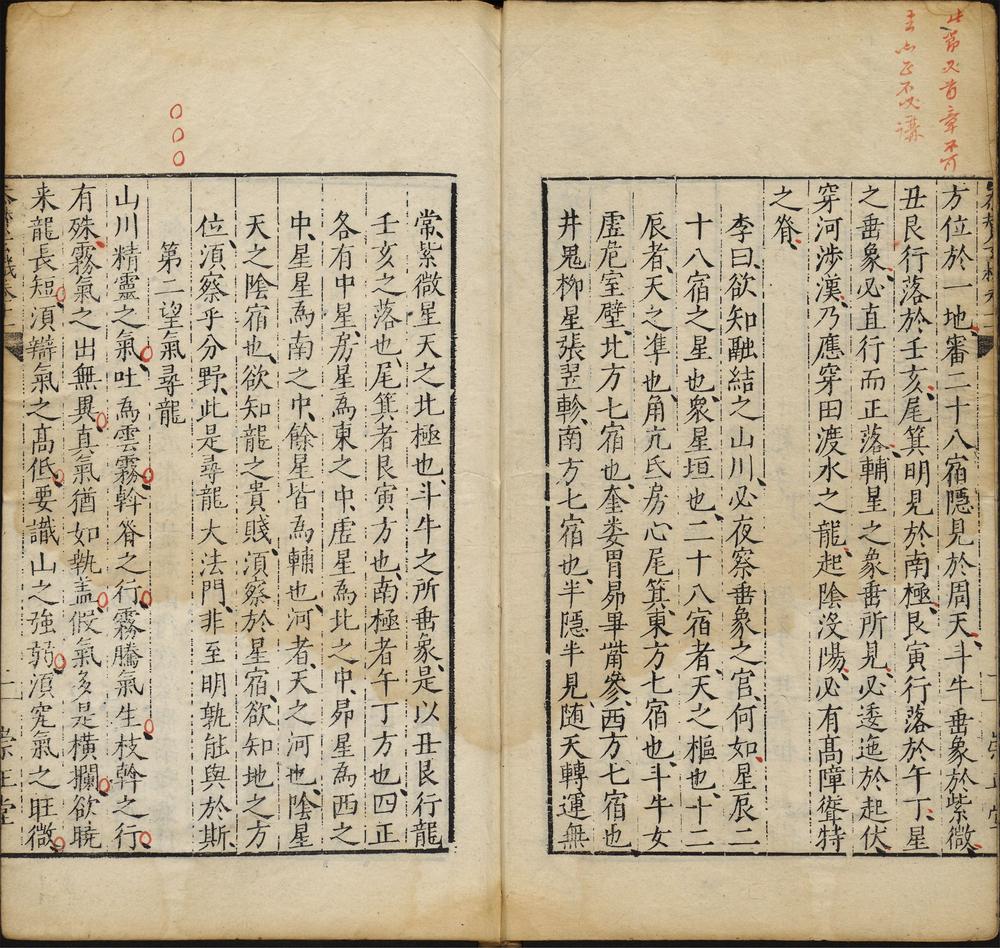 此節及首章不可
方位於一地審二十八宿隱見於周天斗牛垂象於紫微
丑艮行落於壬亥尾箕明見於南極艮寅行落於午丁星
之垂象必直行而正落輔星之象垂所見必逶迤於起伏
穿河涉漢乃應穿田渡水之龍起陰沒陽必有高障聳特
之脊
李曰欲知融結之山川必夜察垂象之官何如星辰二
十八宿之星也衆星垣也二十八宿者天之樞也十二
辰者天之凖也角亢氐房心尾箕東方七宿也斗牛女
虛危室壁北方七宿也奎娄胃昴畢觜參西方七宿也
井鬼柳星張翌軫南方七宿也半隱半見随天轉運無
常紫微星天之北極也斗牛之所垂象是以丑艮行龍
壬亥之落也尾箕者艮寅方也南極者午丁方也四正
各有中星房星為東之中虛星為北之中昴星為西之
中星星為南之中餘星皆為輔也河者天之河也陰星
天之陰宿也欲知龍之貴賤須察於星宿欲知地之方
位須察乎分野此是尋龍大法門非至明孰能與於斯
第二望氣尋龍
山川精靈之氣吐為雲霧幹脊之行霧騰氣生枝幹之行
有殊霧氣之出無異真氣猶如執盖假氣多是橫攔欲曉
来龍長短須辯氣之高低要識山之強弱須究氣之旺微